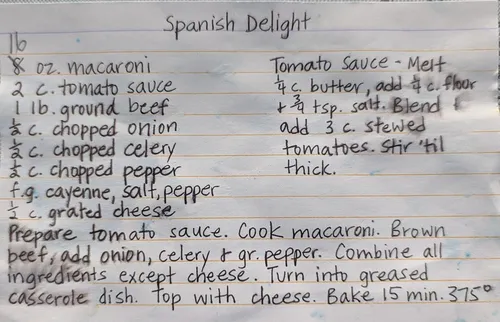 Spanish Delight
16
8 oz. macaroni
2 c. tomato sauce
1 lb. ground beef
½ c. chopped onion
½ c. chopped celery
½ c. chopped pepper
f.g. cayenne, salt, pepper
½ c. grated cheese
Tomato Sauce - Melt
¼ c. butter, add ¼ c. flour
+ ¾ tsp. salt. Blend &
add 3 c. stewed
tomatoes. Stir 'til
thick.
Prepare tomato sauce. Cook macaroni. Brown
beef, add onion, celery & gr. pepper. Combine all
ingredients except cheese. Turn into greased
casserole dish. Top with cheese. Bake 15 min. 375°